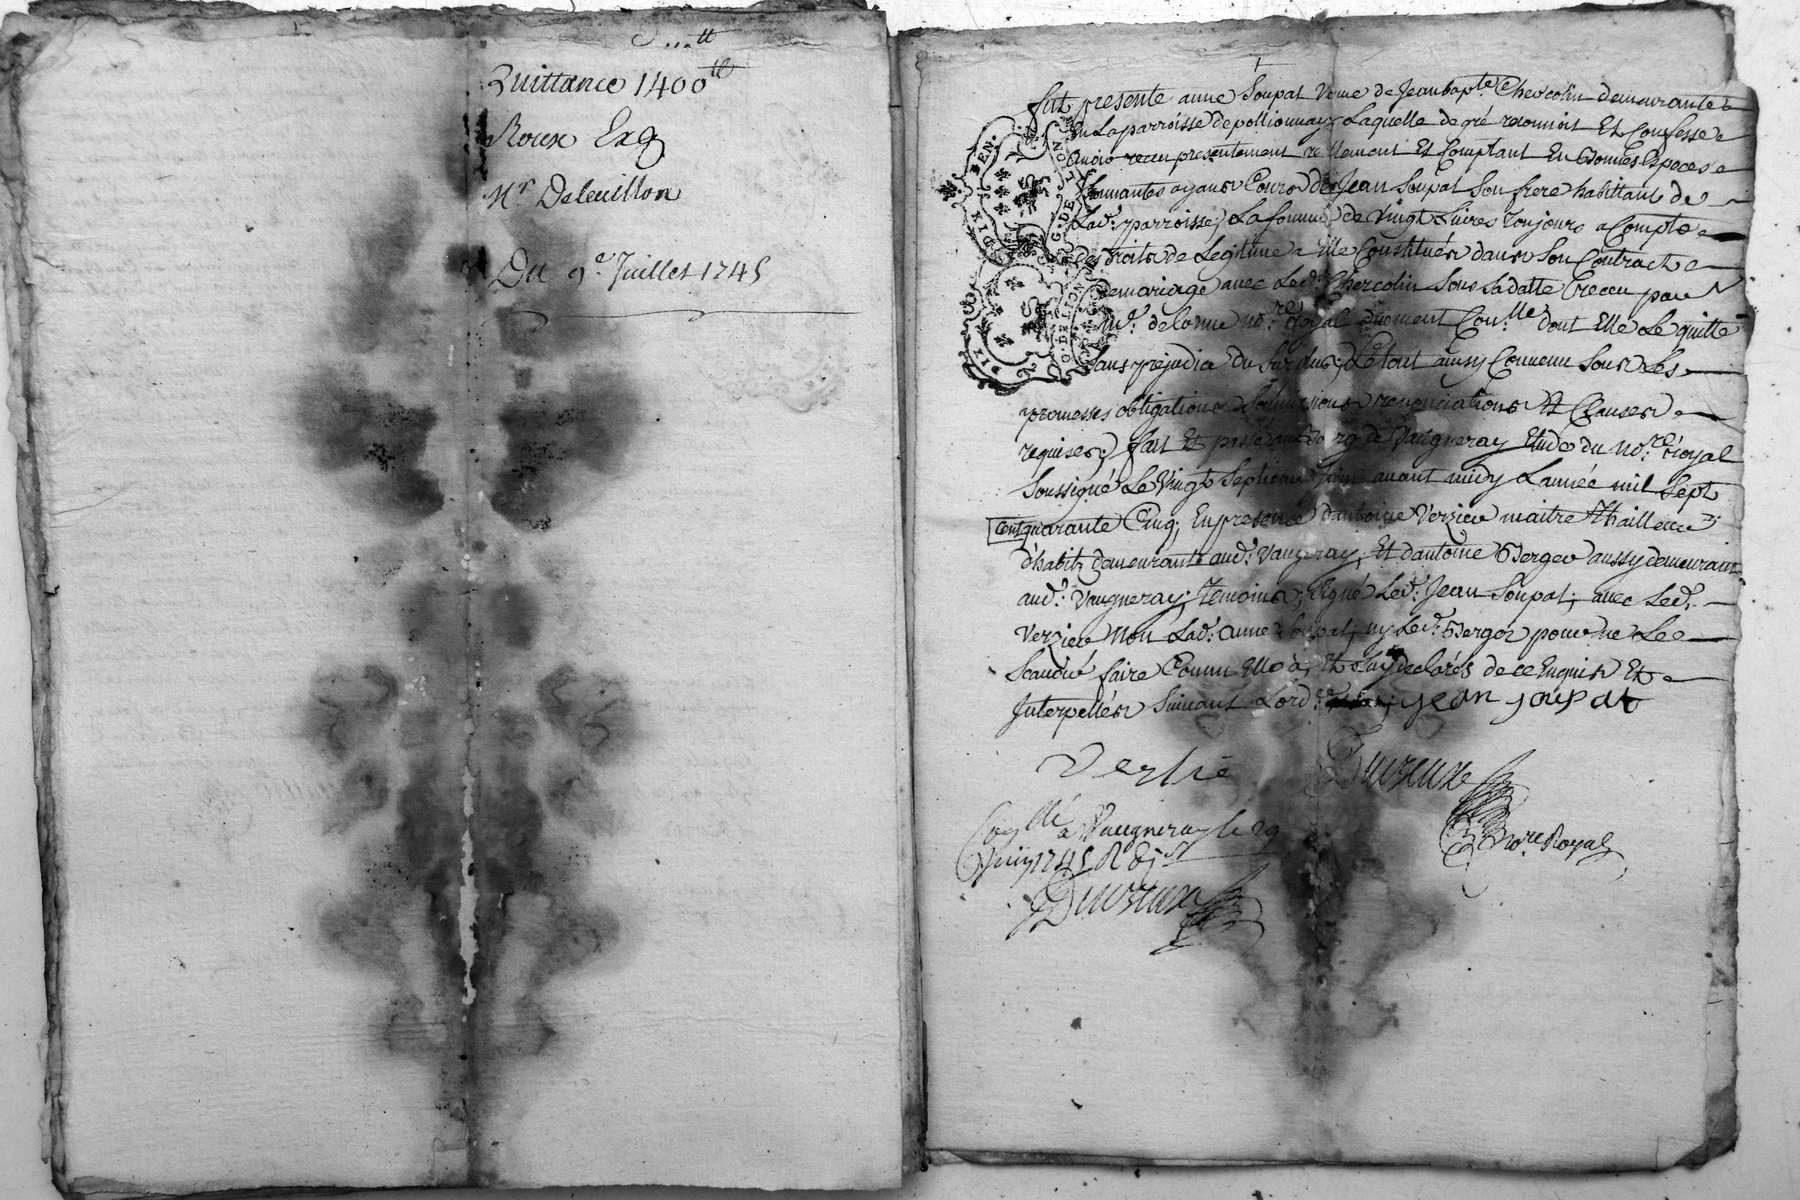 Quittance 1400ᵗᵗ
Roux Exg
Mʳ Deleuillon
Du 9ᵉ Juillet 1745
fut presente anne Soupat veuve de Jean bapᵗᵉ Chercolin demeurante
en La parroisse de pollionnay, Laquelle de gré reconnoit Et Confesse
avoir receu presentement reellement Et Comptant En Bonnes Espaces
Sonnantes ayans Cours de Jean Soupat Son frere habittant de
Lad: parroisse, La somme de Vingt Livres toujours a Compte
des droits de Legitime a Elle Constitués dans Son Contract
de mariage avec Led: Chercolin Sous Sa datte receu par
Mᵉ: delorme noʳᵉ Royal duement Conˡˡᵉ dont Elle Le quitte
Sans prejudice du Surplus, Le tout ainsy Convenu Sous Les
promesses obligations Soumissions renonciations Et Clauses
requises; fait Et passé au Bourg de Vaugneray Etude du noʳᵉ royal
Soussigné Le Vingt Septieme Juin avant midy L'année mil Sept
Cent quarante Cinq; En presence d'antoine Verzieu maitre Thailleur
d'habits demeurant aud: Vaugneray, Et d'antoine Berger aussy demeurant
aud: Vaugneray; Temoins, Signé Led: Jean Soupat; avec Led:
Verzieu Non Lad: anne Soupat, ny Led: Berger pour ne Le
Scavoir faire Comme Elle à, Et Luy declarés de ce Enquis Et
Interpellés Suivant Lordᶜᵉ jean soupat
Verzié
Duvreux
noʳᵉ Royal
DIX DEN.
G. DE LION
Conˡˡᵉ a Vaugneray le 29
Juin 1745 R